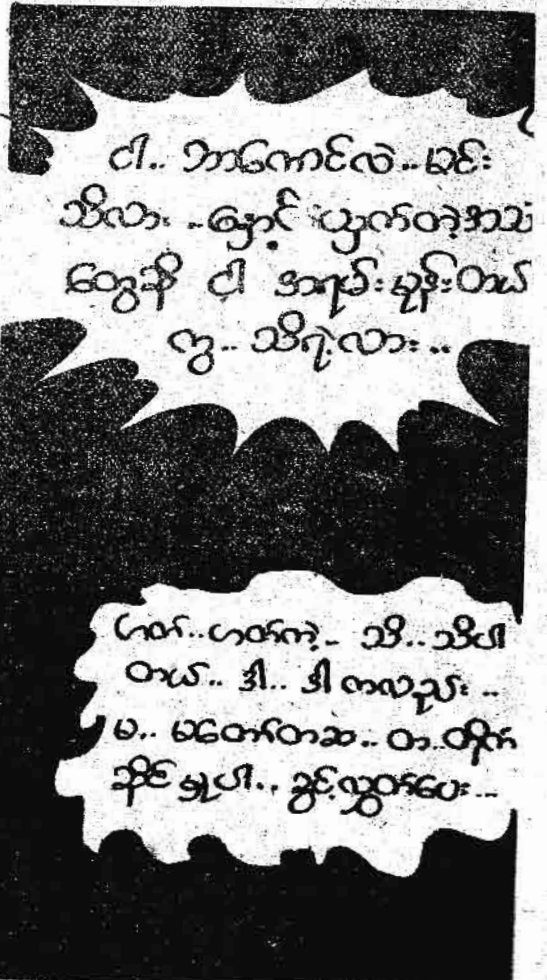 ငါ.. ဘာကောင်လဲ..မင်း
သိလား ..နှောင့်ယှက်တဲ့အသံ
တွေဆို ငါ အရမ်းမုန်းတယ်
ကွ.. သိရဲ့လား..
ဟတ်..ဟတ်ကဲ့.. သိ..သိပါ
တယ်.. ဒါ.. ဒါ ကလည်း ..
မ.. မတော်တဆ.. တ..တိုက်
ဆိုင်မှုပါ.. ခွင့်လွှတ်ပေး...